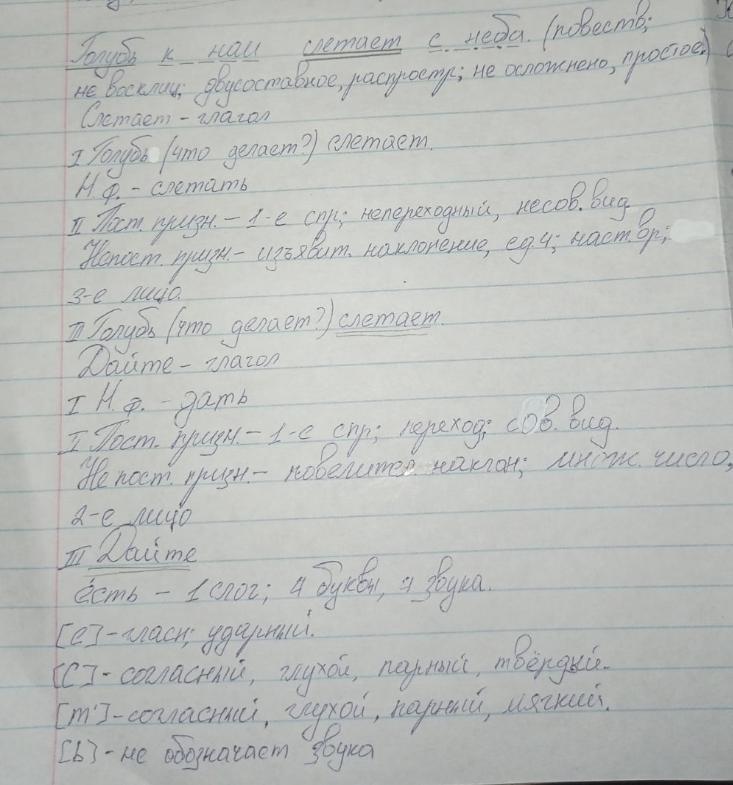 Голубь к нам слетает с неба. (повеств;
не восклиц; двусоставное, распростр; не осложнено, простое.)
Слетает - глагол
I Голубь (что делает?) слетает.
Н.ф. - слетать
II Пост. призн. - 1-е спр; непереходный, несов. вид
Непост. призн - изъявит. наклонение, ед.ч; наст.вр;
3-е лицо
III Голубь (что делает?) слетает.
Дайте - глагол
I Н.ф. - дать
I Пост. призн. - 1-е спр; переход; сов. вид.
Непост. призн. - повелител наклон; множ. число,
2-е лицо
III Дайте
есть - 1 слог; 4 буквы, 4 звука.
[е] - гласн; ударный.
[с] - согласный, глухой, парный, твёрдый.
[т'] - согласный, глухой, парный, мягкий.
[ь] - не обозначает звука